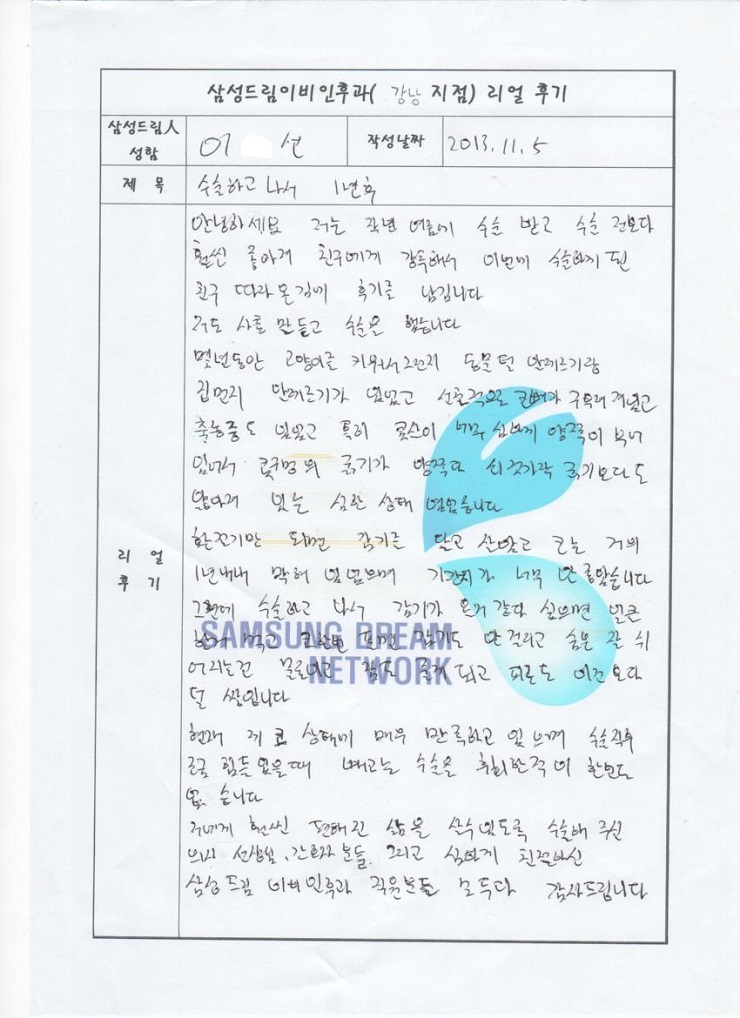 삼성드림이비인후과( 강남 지점) 리얼 후기
삼성드림人 성함 이 선 작성날짜 2013. 11. 5
제 목 수술하고 나서 1년후
리 얼 후 기
안녕하세요 저는 작년 여름에 수술 받고 수술 전보다
훨씬 좋아져 친구에게 강추해서 이번에 수술하게 된
친구 따라 온김에 후기를 남깁니다
저도 사촌 말듣고 수술을 했습니다
몇년동안 고양이를 키워서 그런지 동물 털 알레르기랑
집먼지 알레르기가 있었고 선천적으로 코뼈가 구부러져있고
축농증도 있었고 특히 콧살이 너무 심하게 양쪽이 부어
있어서 콧구멍의 굵기가 양쪽다 굵기보다도
있는 심한 상태 였었습니다
환절기만 되면 감기를 달고 살았고 코는 거의
1년내내 막혀 있었으며 기관지가 너무 안 좋았습니다
그런데 수술하고 나서 감기가 온거 같다 싶으면 얼른
SAMSUNG DREAM
NETWORK
감기도 안 걸리고 숨은 잘 쉬
어지는건 물론이고 잠도 되고 피로도 이전보다
덜 쌓입니다
현재 제 코 상태에 매우 만족하고 있으며 수술직후
조금 힘들었을때 빼고는 수술을 후회한적이 한번도
없습니다
저에게 훨씬 편해진 삶을 살수있도록 수술해 주신
의사 선생님, 간호사분들, 그리고 심하게 친절하신
삼성드림 이비인후과 직원분들 모두다 감사드립니다